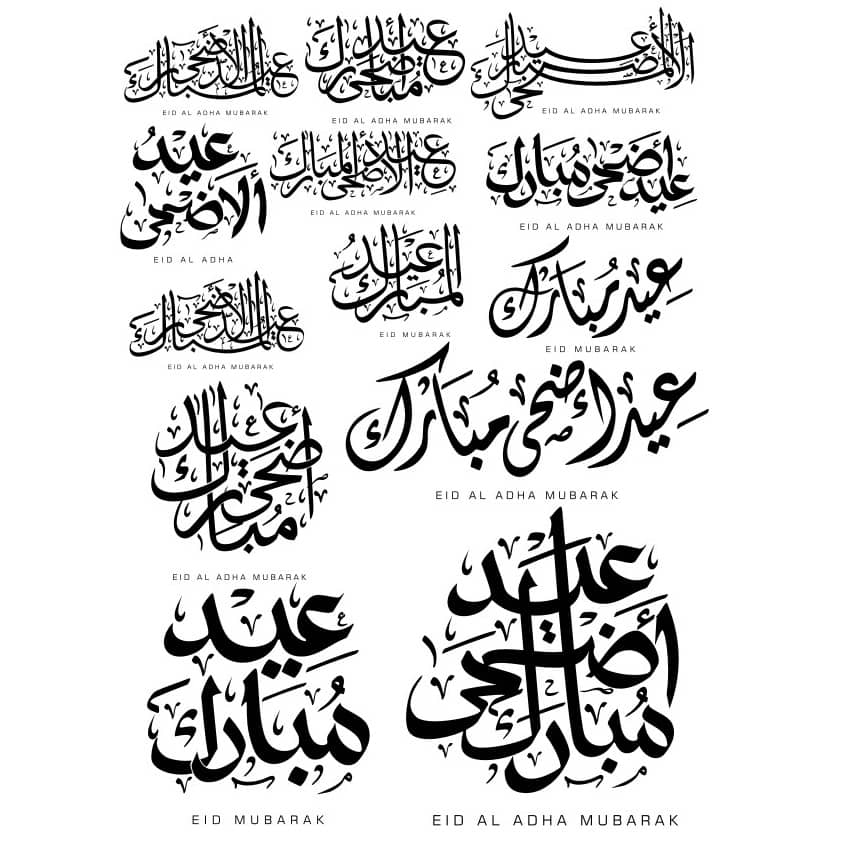 عيد الأضحى المبارك
EID AL ADHA MUBARAK
عيد أضحى مبارك
EID AL ADHA MUBARAK
عيد الأضحى المبارك
EID AL ADHA MUBARAK
عِيدُ
الأَضْحى
EID AL ADHA
عيد الأضحى المبارك
EID AL ADHA MUBARAK
عيد أضحى مُبارك
EID AL ADHA MUBARAK
عيد الأضحى المبارك
EID AL ADHA MUBARAK
العيد المُبارك
EID MUBARAK
عِيد مُبارك
EID MUBARAK
عيد
أضحى
مُبارك
EID AL ADHA MUBARAK
عِيد أضحى مُبارك
EID AL ADHA MUBARAK
عِيد
مُبَارك
EID MUBARAK
عيد
أضحى
مُبارك
EID AL ADHA MUBARAK